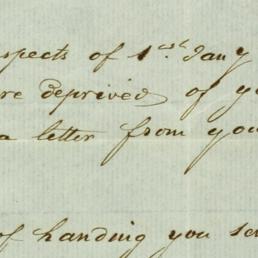 spects of 1st Jany
re deprived of y
a letter from you
of handing you se